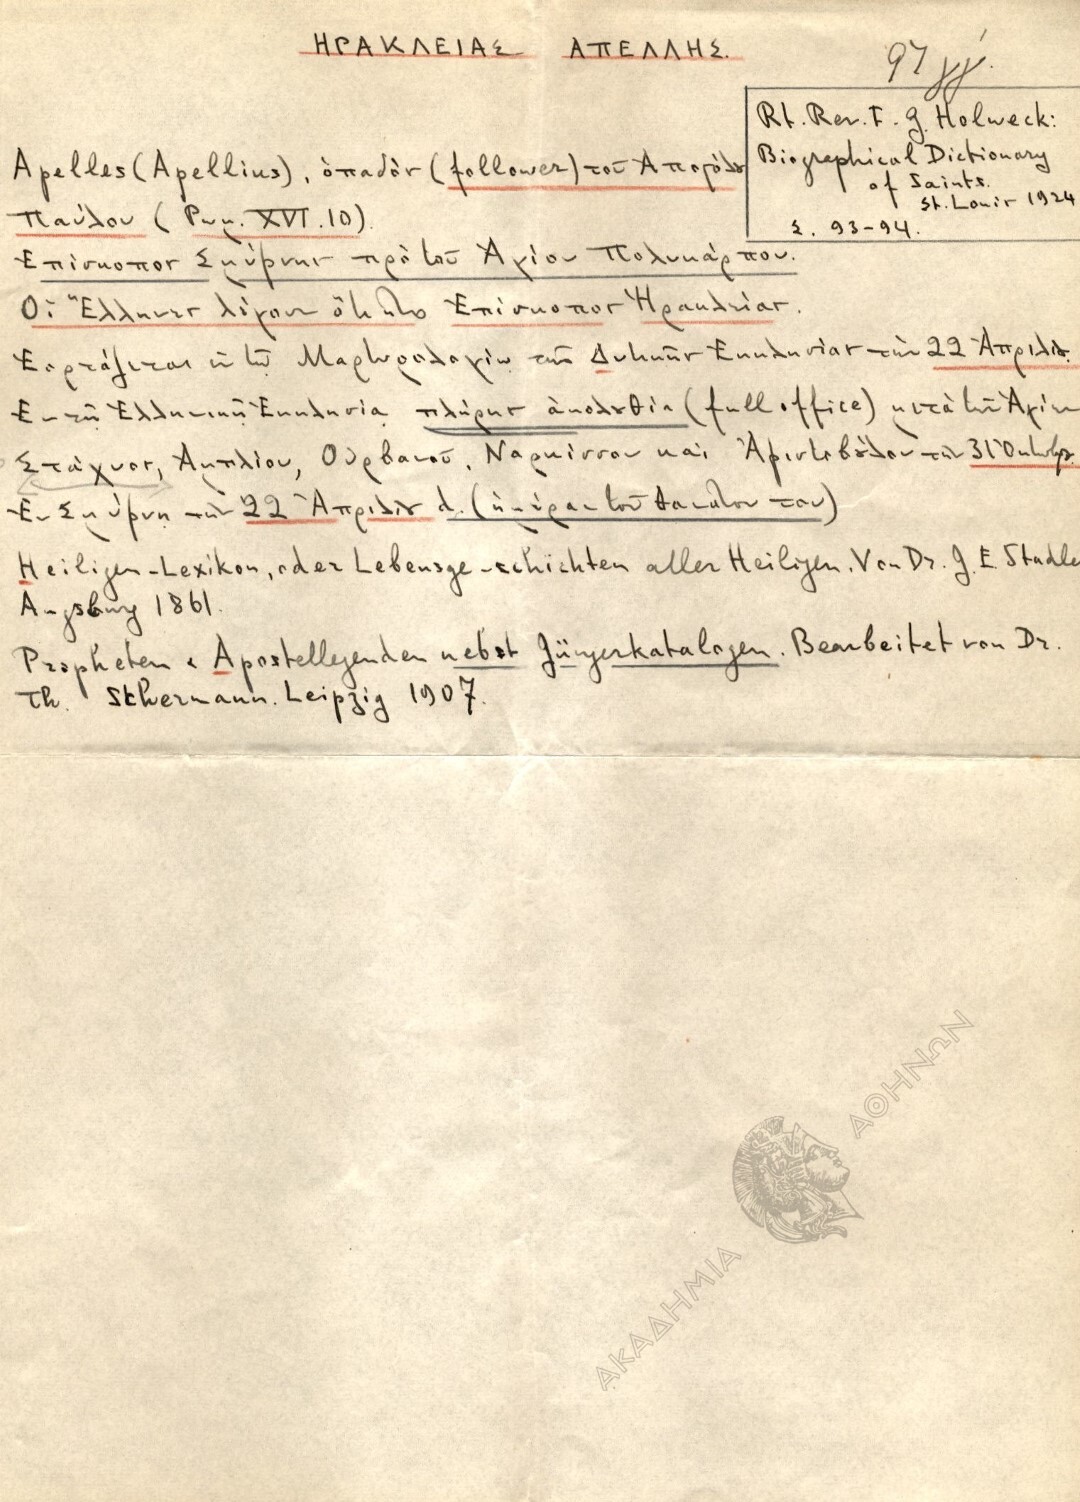 ΗΡΑΚΛΕΙΑΣ ΑΠΕΛΛΗΣ.
97 γγ'.
Rt. Rev. F. G. Holweck:
Biographical Dictionary
of Saints.
St. Louis 1924
Σ. 93-94.
Apelles (Apellius), ὀπαδὸς (follower) τοῦ Ἀποστόλου
Παύλου (Ρωμ. XVI.10).
Ἐπίσκοπος Σμύρνης πρὸ τοῦ Ἁγίου Πολυκάρπου.
Οἱ Ἕλληνες λέγουν ὅτι ἦτο Ἐπίσκοπος Ἡρακλείας.
Ἑορτάζεται ἐν τῷ Μαρτυρολογίῳ τῆς Δυτικῆς Ἐκκλησίας τὴν 22 Ἀπριλίου.
Ἐν τῇ Ἑλληνικῇ Ἐκκλησίᾳ πλήρης ἀκολουθία (full office) μετὰ τῶν Ἁγίων
Στάχυος, Ἀμπλίου, Οὐρβανοῦ, Ναρκίσσου καὶ Ἀριστοβούλου τὴν 31 Ὀκτωβρ.
Ἐν Σμύρνῃ τὴν 22 Ἀπριλίου d. (ἡμέρα τοῦ θανάτου του)
Heiligen-Lexikon, oder Lebensge-schichten aller Heiligen. Von Dr. J. E. Stadle
Augsburg 1861.
Propheten & Apostellegenden nebst Jüngerkatalogen. Bearbeitet von Dr.
Th. Schermann. Leipzig 1907.
ΑΚΑΔΗΜΙΑ ΑΘΗΝΩΝ